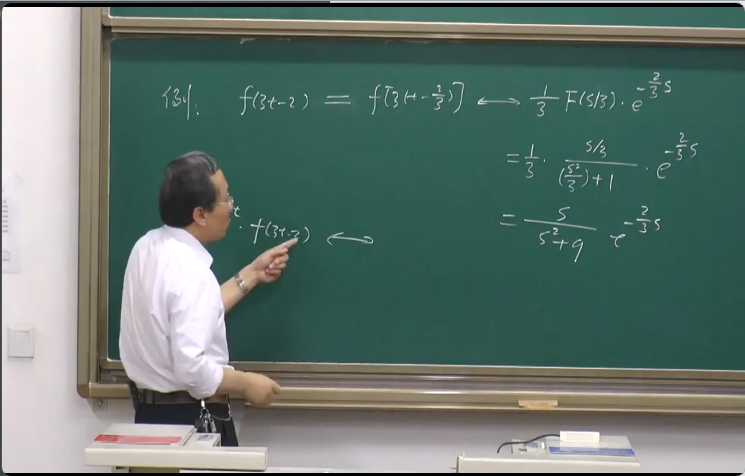 例. f(3t-2) = f[3(t-2/3)] ⟷ 1/3 F(s/3)·e^{-2/3 s}
= 1/3 · (s/3)/((s²/3)+1) · e^{-2/3 s}
= s/(s²+9) e^{-2/3 s}
t · f(3t-2) ⟷